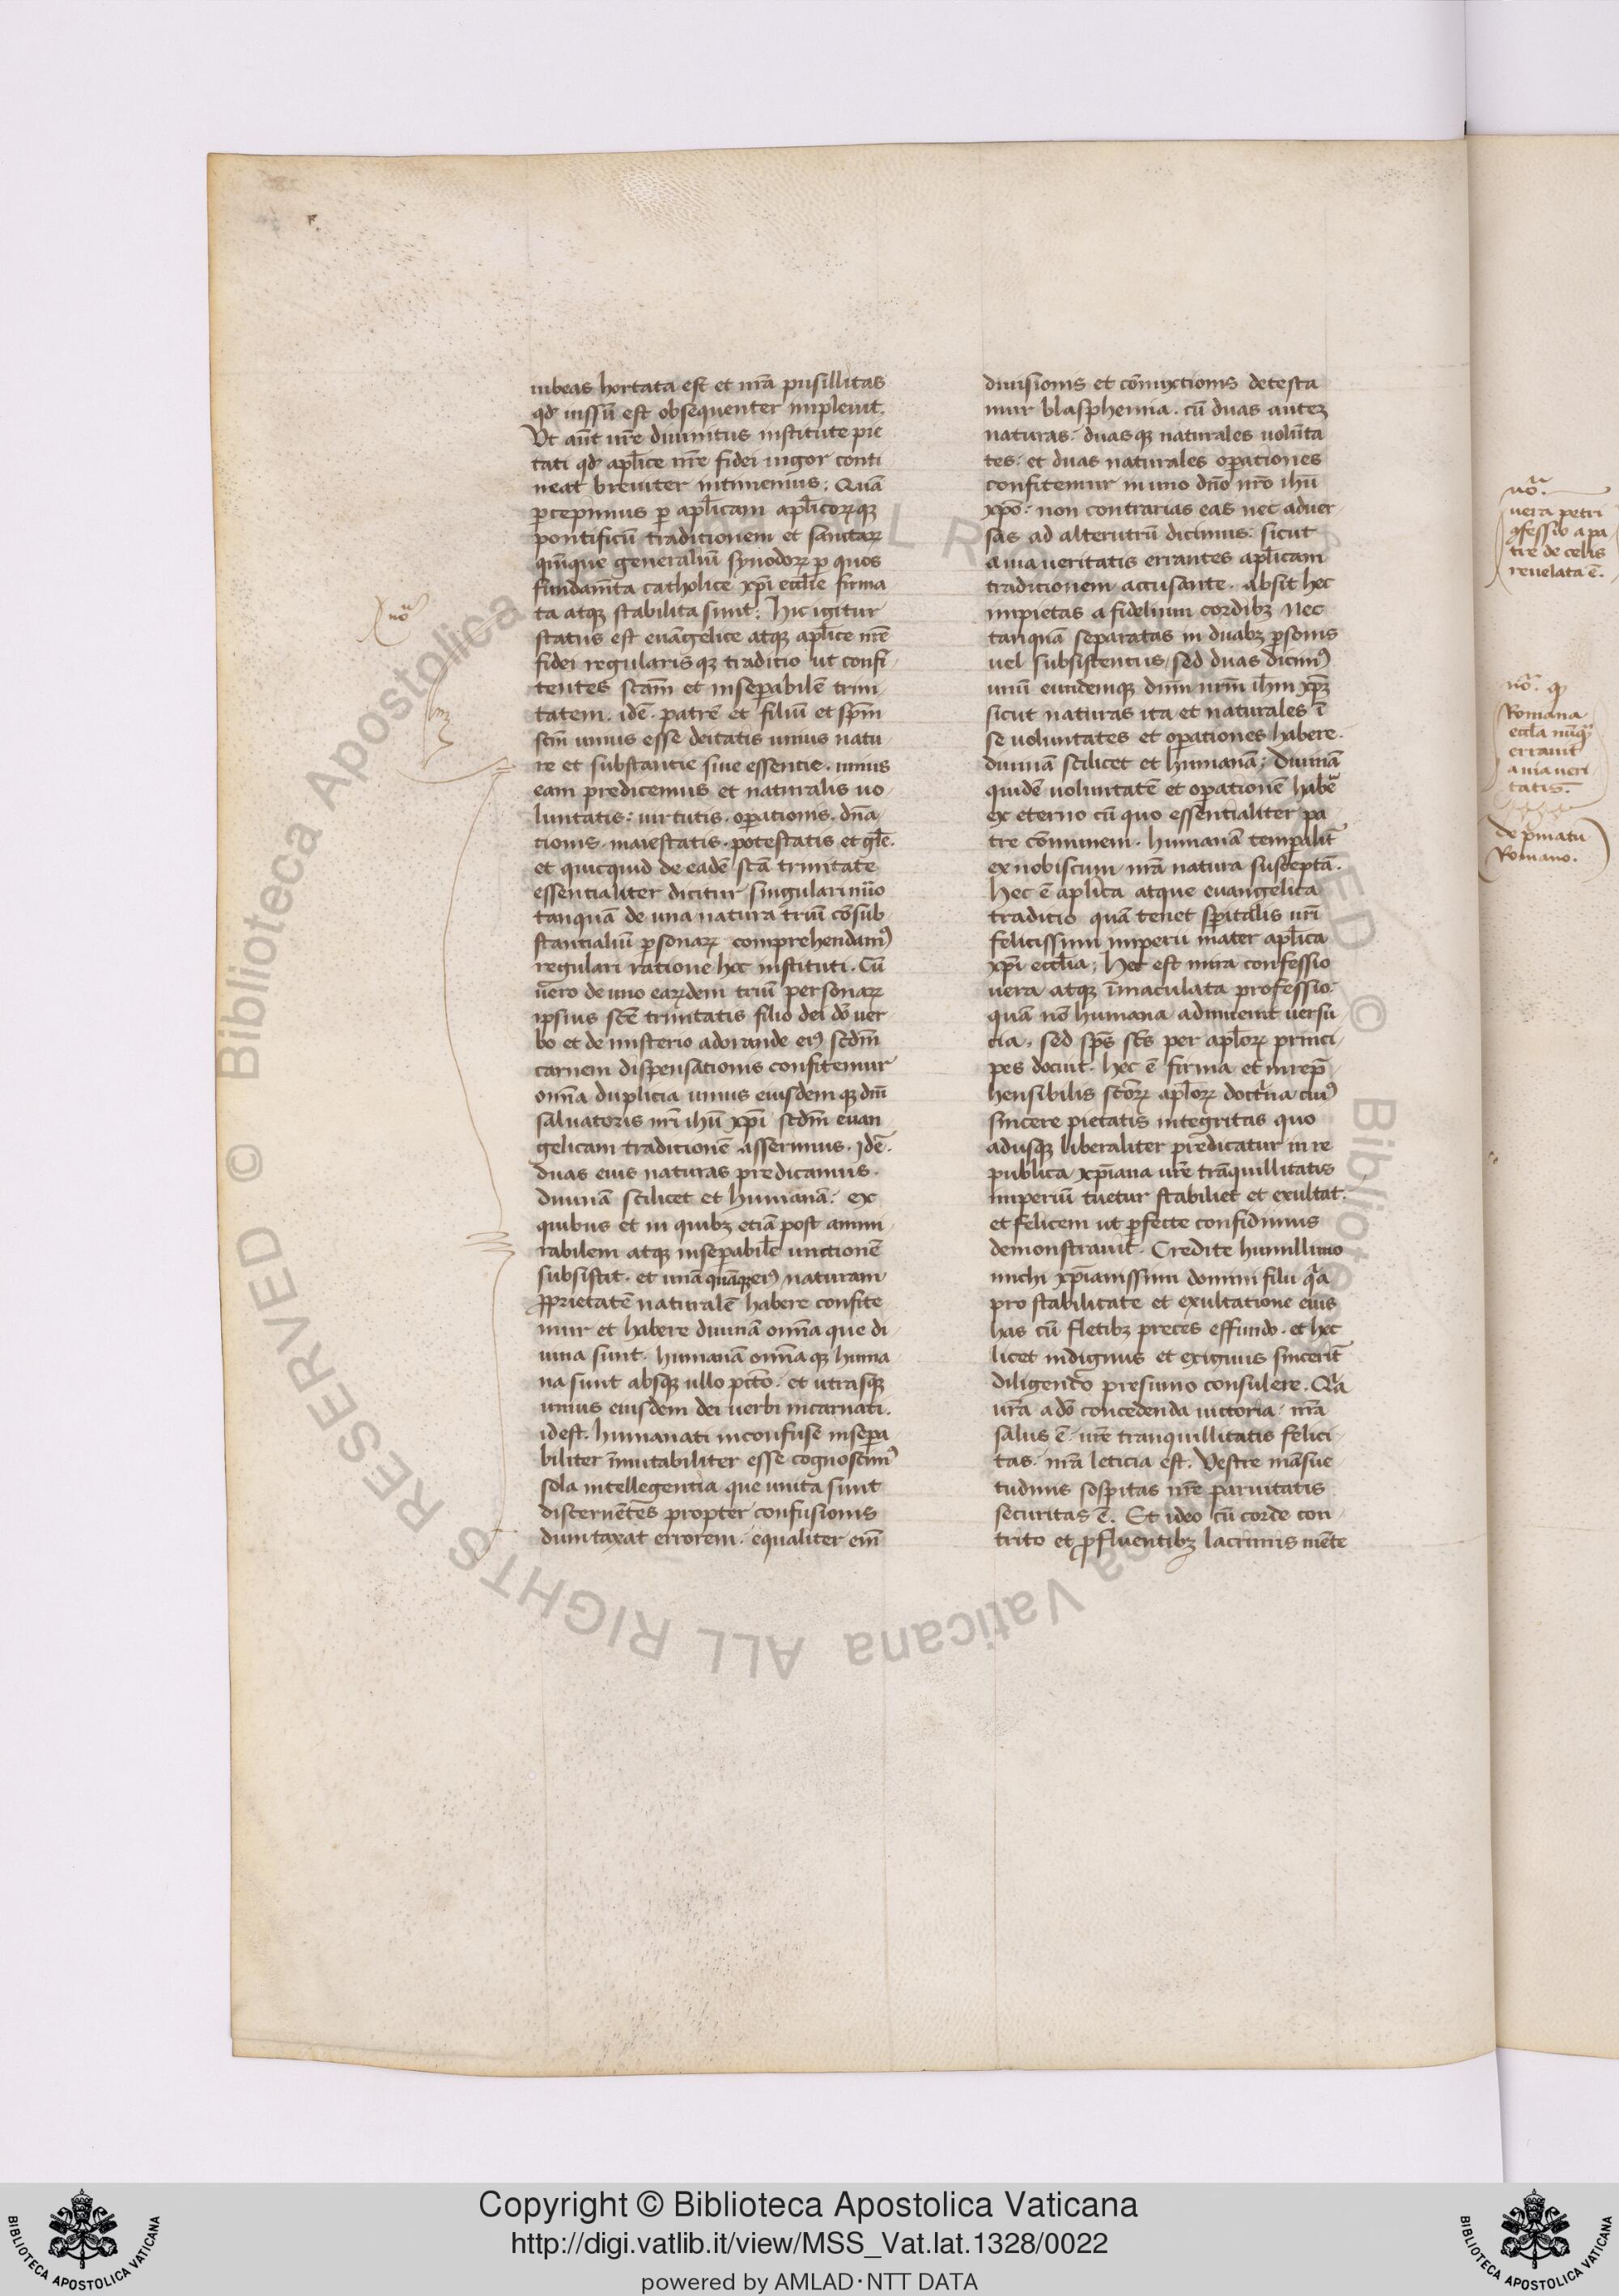 iubeas hortata est et nr̄a pusillitas
qd' iussū est obsequenter impleuit.
Vt aūt ur̄e diuinitus institute pie
tati qd' apl̄ice nr̄e fidei uigor conti
neat breuiter intimemus; Quā
ꝑcepimus ꝑ apl̄icam apl̄icoꝝqꝫ
pontificū traditionem et sanctaꝝ
quīque generaliū synodoꝝ ꝑ quos
fundam̄ta catholice xp̄i eccl̄ie firma
ta atqꝫ stabilita sunt. Hic igitur
status est euāgelice atqꝫ apl̄ice nr̄e
fidei regularisqꝫ traditio ut confi
tentes sc̄am et inseꝑabilē trini
tatem. idē. patrē et filiū et sp̄m
sc̄m unius esse deitatis unius natu
re et substantie siue essentie. unius
eam predicemus et naturalis uo
luntatis. uirtutis. oꝑationis. dn̄a
tionis. maiestatis. potestatis et gl̄e.
et quicquid de eadē sc̄a trinitate
essentialiter dicitur singulari nūo
tanquā de una natura triū cōsub
stantialiū ꝑsonaꝝ comprehendamꝰ
regulari ratione hec instituti. Cū
uēro de uno eaꝝdem triū personaꝝ
ipsius sc̄e trinitatis filio dei dō uer
bo et de misterio adorande eiꝰ scd̄m
carnem dispensationis confitemur
om̄a duplicia unius eiusdemqꝫ dn̄i
saluatoris nr̄i ihū xp̄i scd̄m euan
gelicam traditionē asserimus. idē.
duas eius naturas predicamus.
diuinā scilicet et humanā. ex
quibus et in quibꝫ etiā post ammi
rabilem atqꝫ inseꝑabilē unctionē
subsistit. et unā quāqꝫ eiꝰ naturam
ꝓprietatē naturalē habere confite
mur et habere diuinā om̄a que di
uina sunt. humanā om̄aqꝫ huma
na sunt absqꝫ ullo pctō. et utrasqꝫ
unius eiusdem dei uerbi incarnati.
idest. humanati inconfuse inseꝑa
biliter īmutabiliter esse cognoscimꝰ
sola intellegentia que unita sunt
discernētes propter confusionis
dumtaxat errorem. equaliter eni̅
diuisionis et cōmixtionis detesta
mur blasphemia. cū duas autem
naturas. duasqꝫ naturales uolūta
tes. et duas naturales oꝑationes
confitemur in uno dn̄o nr̄o ihū
xp̄o. non contrarias eas nec aduer
sas ad alterutrū dicimus. sicut
a uia ueritatis errantes apl̄icam
traditionem accusante. absit hec
impietas a fidelium cordibꝫ Nec
tanquā separatas in duabꝫ ꝑsonis
uel subsistenciis, sed duas dicimꝰ
unū eundemqꝫ dn̄m nr̄m ih̄m xp̄ꝫ
sicut naturas ita et naturales ī
se uoluntates et oꝑationes habere.
diuinā scilicet et humanā; Diuinā
quidē uoluntatē et oꝑationē habē
ex eterno cū quo essentialiter pa
tre cōmunem. humanā temꝑalit̄
ex nobiscum nr̄a natura susceptā.
Hec ē apl̄ica atque euangelica
traditio quā tenet sp̄italis ur̄i
felicissimi imperii mater apl̄ica
xp̄i eccl̄ia; Hec est mira confessio
uera atqꝫ īmaculata professio.
quā nō humana adinuenit uersu
cia, sed sp̄s sc̄s per apl̄oꝝ princi
pes docuit. hec ē firma et inrep̄
hensibilis sc̄oꝝ apl̄oꝝ doctrina cuiꝰ
sincere pietatis integritas quo
adusqꝫ liberaliter predicatur in re
publica xp̄iana ur̄e trāquillitatis
imperiū tuetur stabiliet et exultat.
et felicem ut ꝑfecte confidimus
demonstrauit. Credite humillimo
michi xp̄ianissimi domini filii qa
pro stabilitate et exultatione eius
has cū fletibꝫ preces effundo. et hec
licet indignus et exiguus sincerit̄
diligendo presumo consulere. Qa
ur̄a a dō concedenda uictoria. nr̄a
salus ē. ur̄e tranquillitatis felici
tas. nr̄a leticia est. Vestre māsue
tudinis sosꝑitas nr̄e paruitatis
securitas ē. Et ideo cū corde con
trito et ꝓfluentibꝫ lacrimis mēte
nōa
nōa
uera petri
ꝯfessio a pa
tre de celis
reuelata ē.
nōa. ꝙ
Romana
eccl̄a nūqꝫ
errauit
a uia ueri
tatis.
de pͥmatu
Romano.
Copyright © Biblioteca Apostolica Vaticana
http://digi.vatlib.it/view/MSS_Vat.lat.1328/0022
powered by AMLAD·NTT DATA
BIBLIOTECA APOSTOLICA VATICANA
BIBLIOTECA APOSTOLICA VATICANA
© Biblioteca Apostolica Vaticana ALL RIGHTS RESERVED